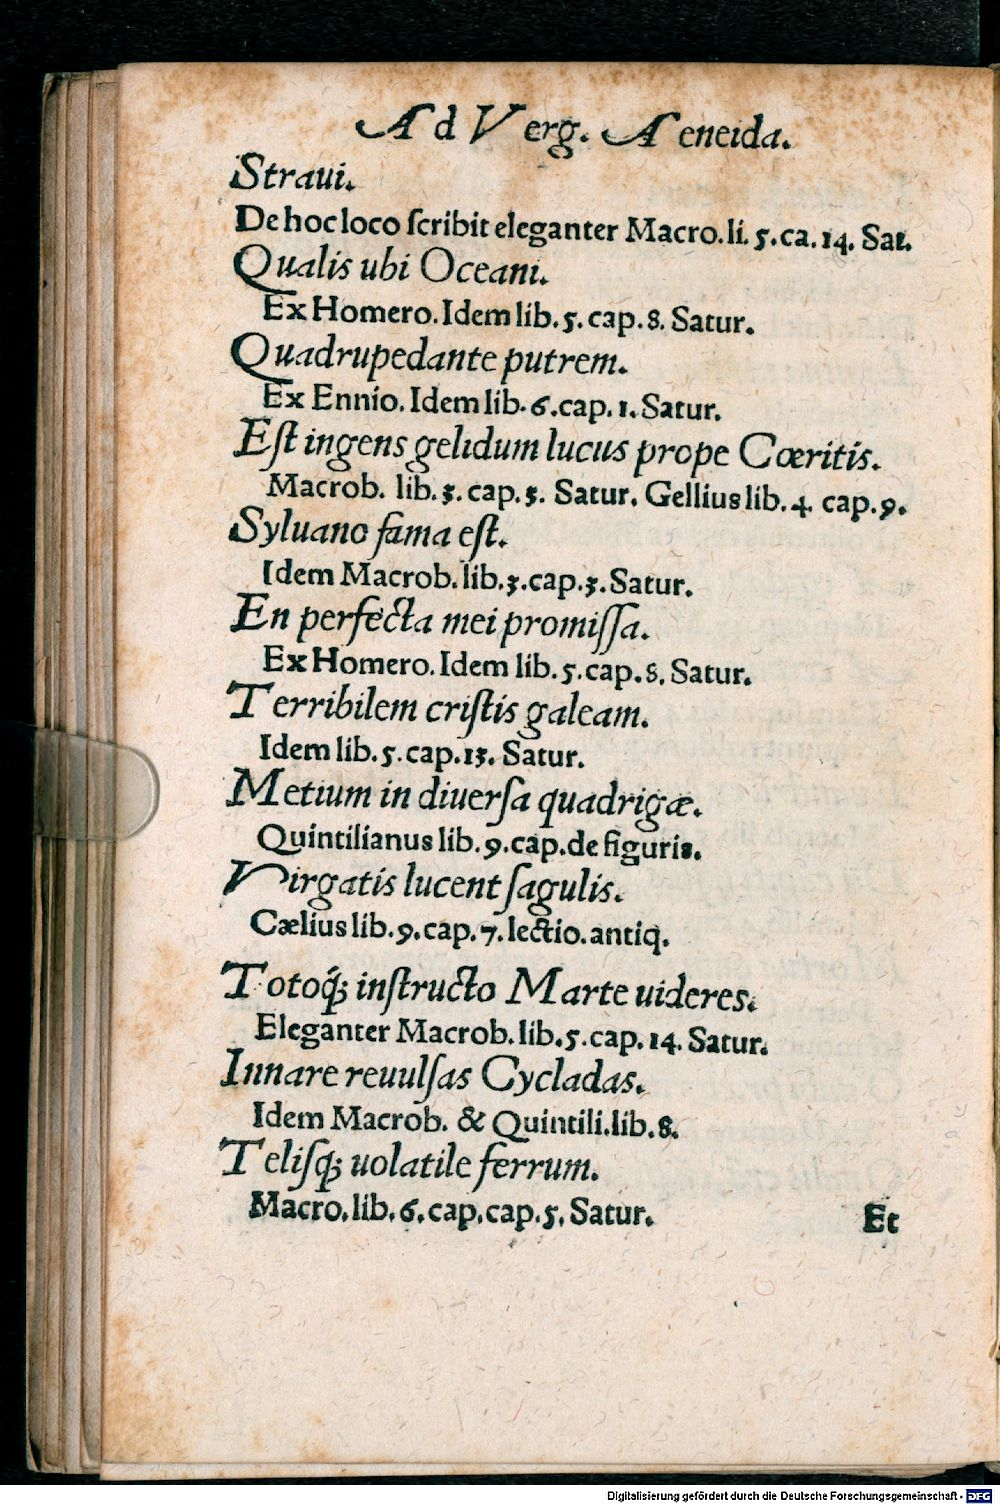 Ad Verg. Aeneida.
Straui.
De hoc loco ſcribit eleganter Macro. li. 5. ca. 14. Sat.
Qualis ubi Oceani.
Ex Homero. Idem lib. 5. cap. 8. Satur.
Quadrupedante putrem.
Ex Ennio. Idem lib. 6. cap. 1. Satur.
Eſt ingens gelidum lucus prope Cœritis.
Macrob. lib. 3. cap. 5. Satur. Gellius lib. 4. cap. 9.
Syluano fama eſt.
Idem Macrob. lib. 3. cap. 3. Satur.
En perfecta mei promiſſa.
Ex Homero. Idem lib. 5. cap. 8. Satur.
Terribilem criſtis galeam.
Idem lib. 5. cap. 13. Satur.
Metium in diuerſa quadrigæ.
Quintilianus lib. 9. cap. de figuris.
Virgatis lucent ſagulis.
Cælius lib. 9. cap. 7. lectio. antiq.
Totoq́; inſtructo Marte uideres.
Eleganter Macrob. lib. 5. cap. 14. Satur.
Innare reuulſas Cycladas.
Idem Macrob. & Quintili. lib. 8.
Teliſq́; uolatile ferrum.
Macro. lib. 6. cap. cap. 5. Satur.
Et
Digitalisierung gefördert durch die Deutsche Forschungsgemeinschaft - DFG